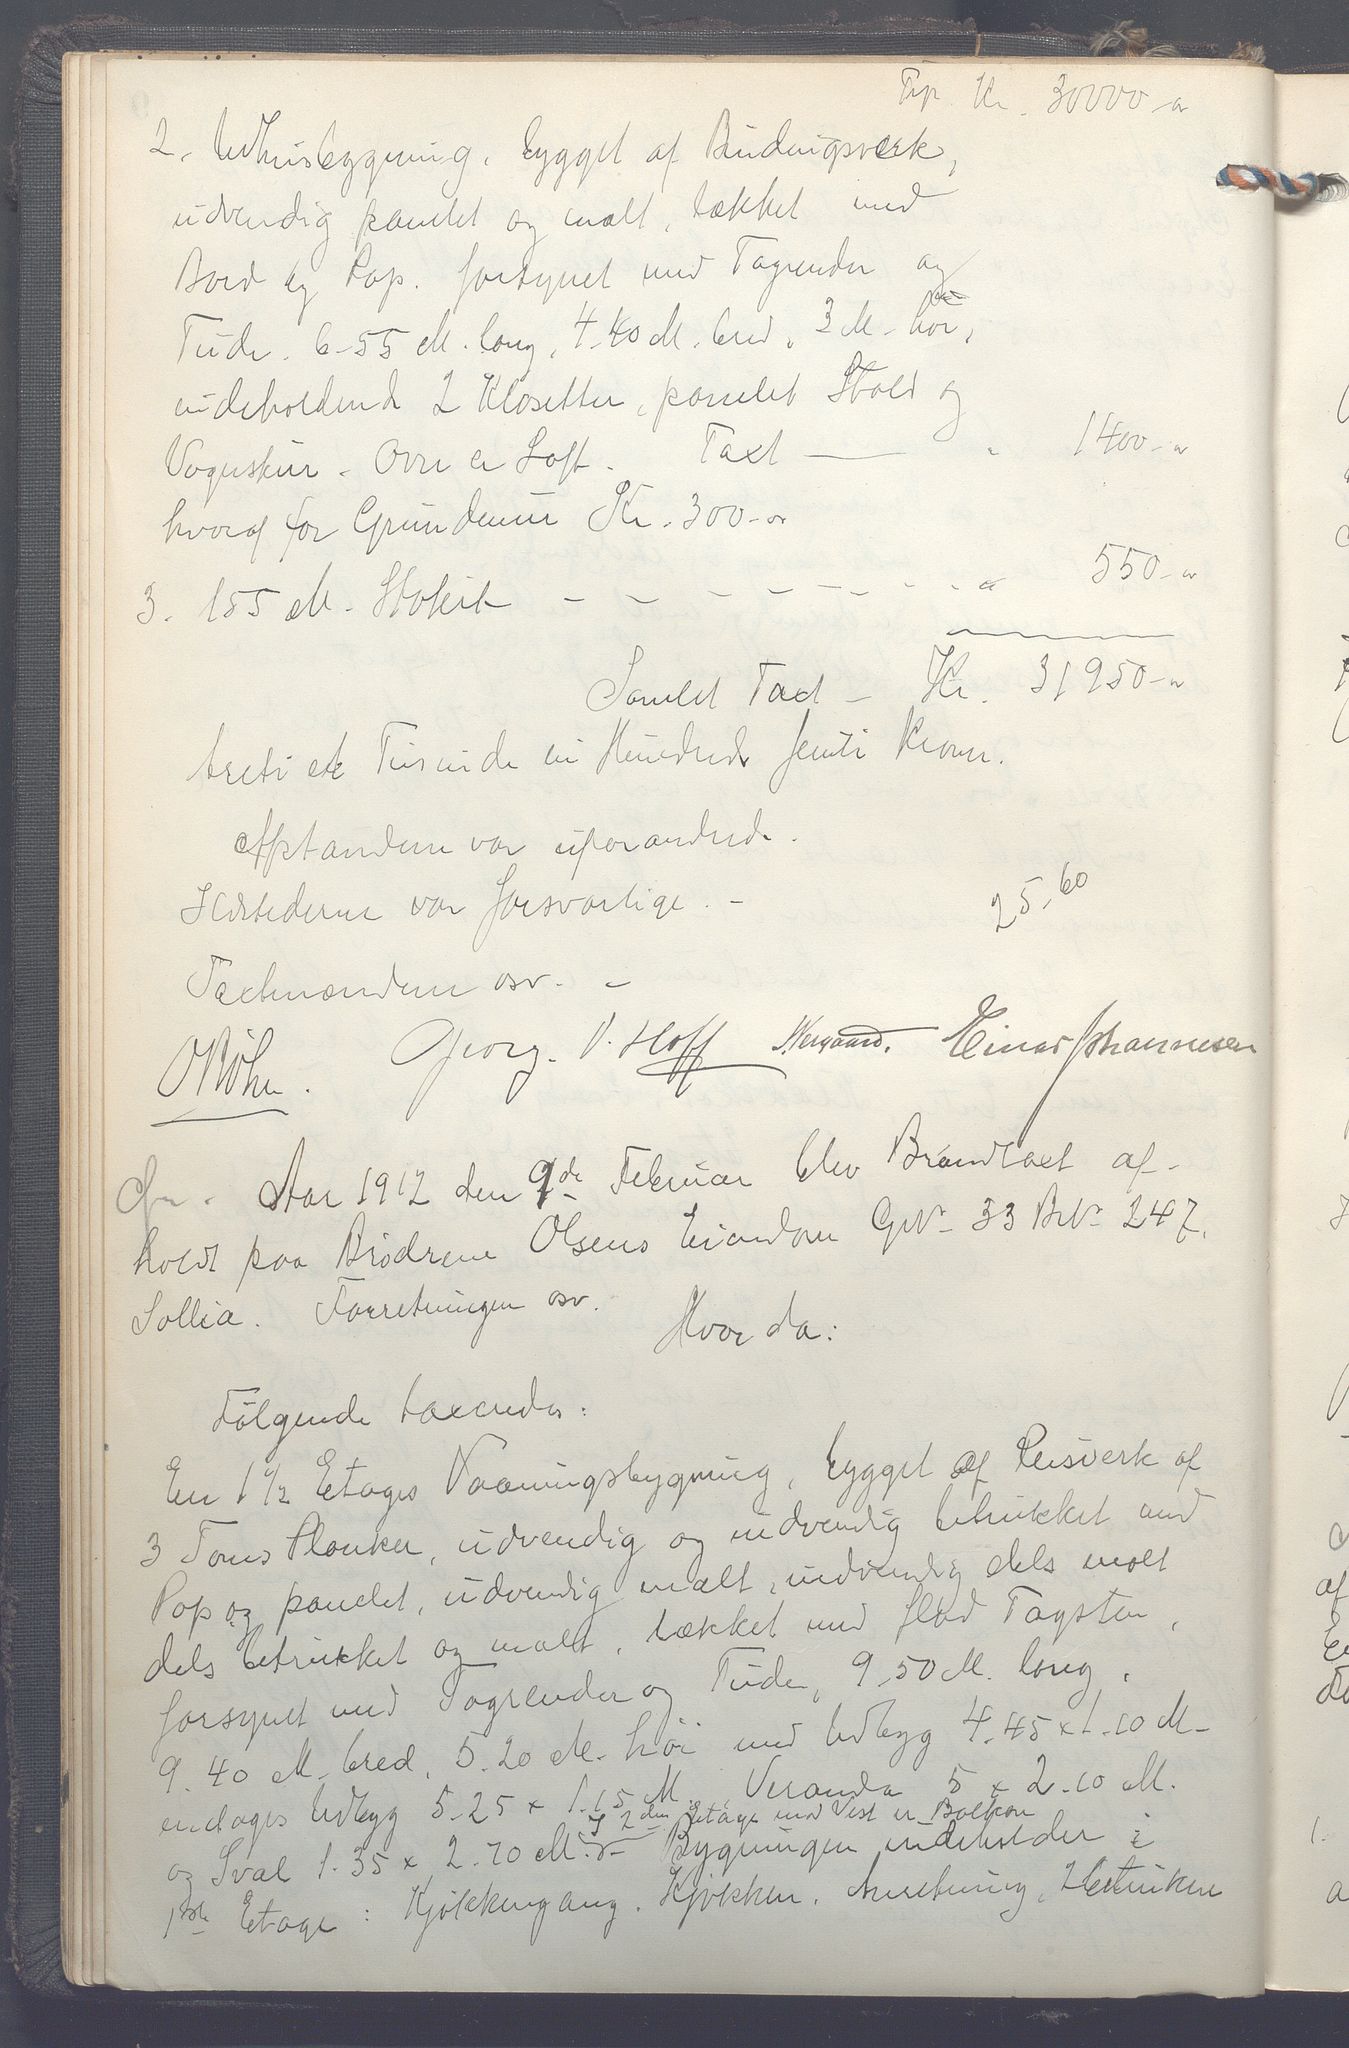 Trp. Kr. 30000-"
2. Udhusbygning, bygget af Bindingsverk,
udvendig panelet og malt, tækket med
Bord og Pap. forsynet med Tagrender og
Tude. 6-55 M. lang, 4.40 M. bred, 3 M. høi,
indeholdende 2 Klosetter, panelet Stald og
Vognskur. Over er Loft. Taxt — " 1400-"
hvoraf for Grundmur Kr. 300-"
3. 155 M. Stakit - - - - - - - - " 550-"
Samlet Taxt - Kr. 31950-"
treti et Tusinde ni Hundrede femti Kroner.
Afstandene var uforandrede.
Ildstederne var forsvarlige. - 25-60
Taxtmændene osv. -
O Bøhn. Georg. V. Hoff Nergaard. Einar Johannesen
Aar 1912 den 9de Februar blev Brandtaxt af-
holdt paa Brødrene Olsens Eiendom Gr№ 33 Br№ 247.
Sollia. Forretningen osv.
Hvor da:
Følgende taxeredes:
En 1 1/2 Etages Vaaningsbygning, bygget af Reisverk af
3 Toms Planker, udvendig og indvendig betrukket med
Pap og panelet, udvendig malt, indvendig dels malt
dels betrukket og malt, tækket med flad Tagsten,
forsynet med Tagrender og Tude, 9.50 M. lang,
9.40 M. bred, 5.20 M. høi med Udbyg 4.45 x 1.10 M-
enetages Udbyg 5.25 x 1.15 M. Veranda 5 x 2.10 M.
I 2den Etage mod Vest er Balkon
og Sval 1.35 x 2.70 M. Bygningen indeholder i
1ste Etage: Kjøkkengang, Kjøkken, Anretning, 2 betrukne